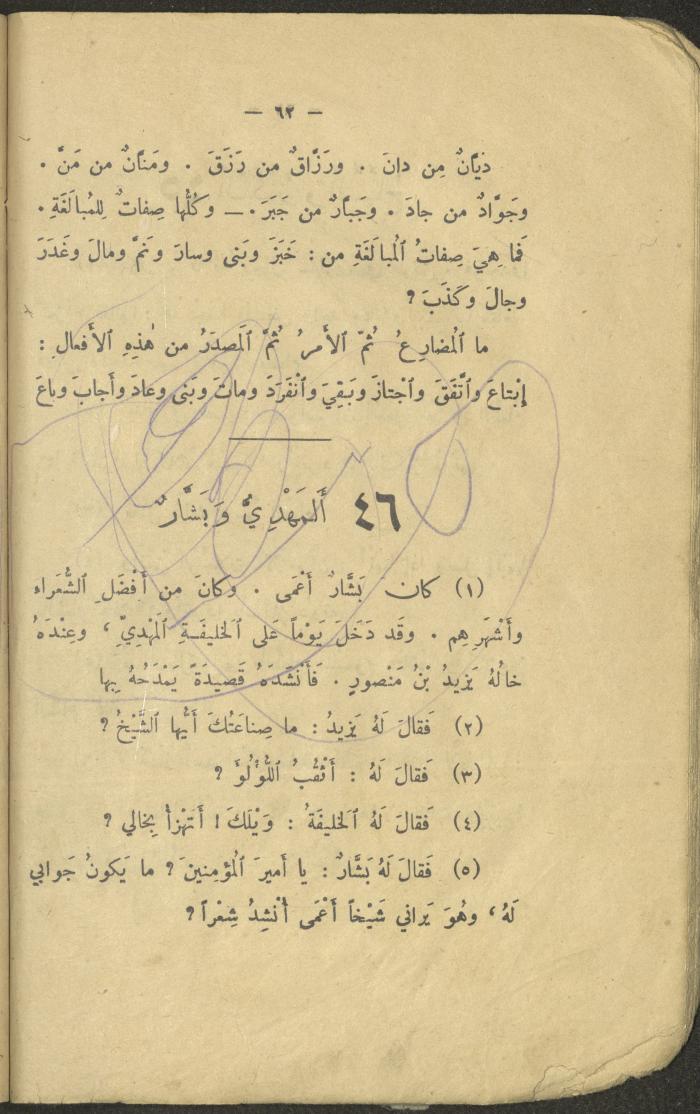 — ٦٢ —
دَيَّانٌ مِن دانَ . ورَزَّاقٌ من رَزَقَ . ومَنَّانٌ من مَنَّ .
وجَوَّادٌ من جادَ . وجَبَّارٌ من جَبَرَ . — وكُلُّها صِفاتٌ لِلمُبالَغَةِ .
فَما هِيَ صِفاتُ ٱلمُبالَغَةِ من : خَبَزَ وبَنى وسارَ ونَمَّ ومالَ وغَدَرَ
وجالَ وكَذَبَ ?
ما ٱلمُضارِعُ ثُمَّ ٱلأَمرُ ثُمَّ ٱلمَصدَرُ من هٰذِهِ ٱلأَفعالِ :
إِبْتاعَ وٱتَّفَقَ وٱجْتازَ وبَقِيَ وٱنْفَرَدَ وماتَ وبَنى وعادَ وأَجابَ وباعَ
٤٦ أَلمَهْدِيُّ وَبَشَّارٌ
(١) كانَ بَشَّارٌ أَعْمَى . وكانَ من أَفْضَلِ ٱلشُّعَراءِ
وأَشْهَرِهِم . وقَد دَخَلَ يَوْماً عَلى ٱلخَليفَةِ ٱلمَهْدِيِّ ، وعِنْدَهُ
خالُهُ يَزيدُ بْنُ مَنْصورٍ . فَأَنْشَدَهُ قَصيدَةً يَمْدَحُهُ بِها
(٢) فَقالَ لَهُ يَزيدُ : ما صِناعَتُكَ أَيُّها ٱلشَّيْخُ ?
(٣) فَقالَ لَهُ : أَثْقُبُ ٱللُّؤْلُوَّ ?
(٤) فَقالَ لَهُ ٱلخَليفَةُ : وَيْلَكَ ! أَتَهْزَأُ بِخالي ?
(٥) فَقالَ لَهُ بَشَّارٌ : يا أَميرَ ٱلمُؤمِنينَ ? ما يَكونُ جَوابي
لَهُ ، وهُوَ يَراني شَيْخاً أَعْمَى أُنْشِدُ شِعْراً ?